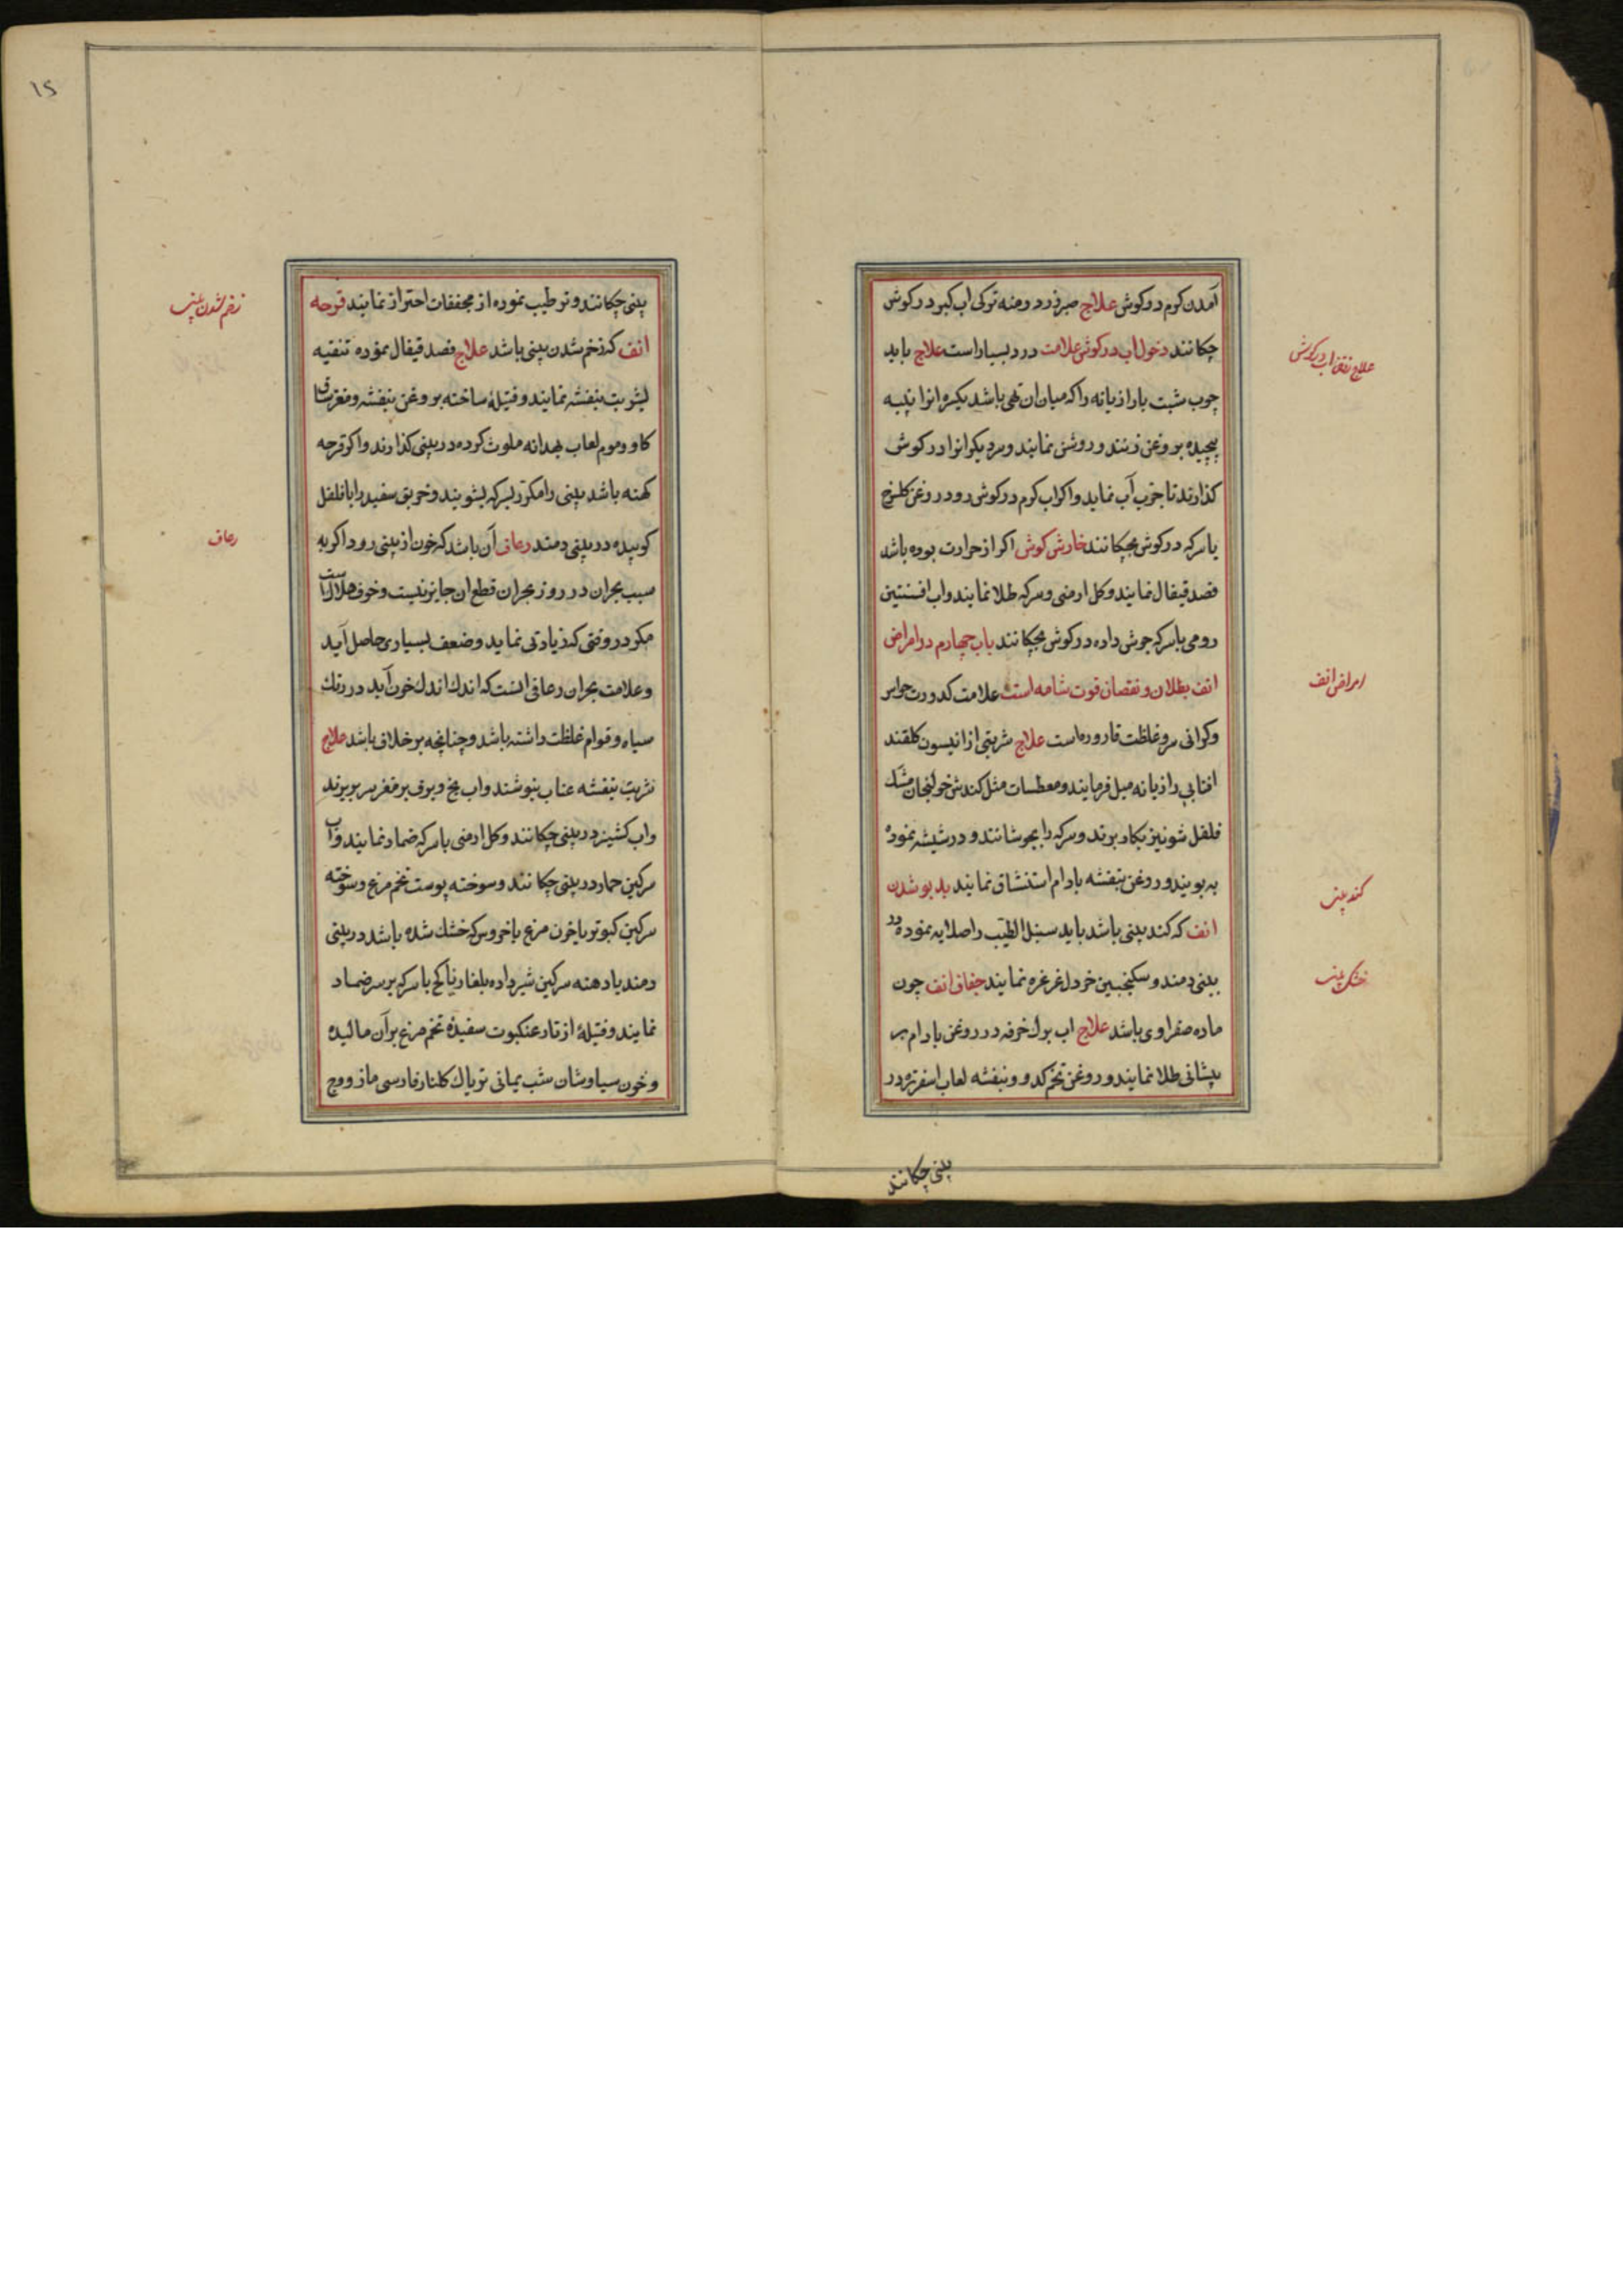 آمدن کرم در کوش علاج صبر زرد درمنه ترکی اب کبر در کوش
چکانند دخول اب در کوش علامت درد بسیار است علاج باید
چوب شبت یا رازیانه را که میان ان تهی باشد یکسره انرا پنبه
پیچیده بروغن زنند و روشن نمایند و سر دیکر انرا در کوش
کذارند تا جذب آب نماید و اکر اب کرم در کوش رود روغن کلسرخ
یا سرکه در کوش بچکانند خارش کوش اکر از حرارت بوده باشد
فصد قیفال نمایند و کل ارمنی و سرکه طلا نمایند و اب افسنتین
رومی با سرکه جوش داده در کوش بچکانند باب چهارم در امراض
انف بطلان و نقصان قوت شامه است علامت کدورت حواس
و کرانی سر و غلظت قاروره است علاج شربتی از انیسون کلقند
افتابی رازیانه میل فرمایند و معطسات مثل کندش خولنجان مشک
فلفل شونیز بکار برند و سرکه را بجوشانند و در شیشه نموده
به بویند و روغن بنفشه بادام استنشاق نمایند بد بو شدن
انف که کند بینی باشد باید سنبل الطیب را صلایه نموده در
بینی دمند و سکنجبین خردل غرغره نمایند جفاف انف چون
ماده صفراوی باشد علاج اب برک خرفه در روغن بادام بر
پیشانی طلا نمایند و روغن تخم کدو و بنفشه لعاب اسفرزه در
بینی چکانند
علاج رفتن اب در کوش
امراض انف
کند بینی
خشکی بینی
۱۵
بینی چکانند و ترطیب نموده از مجففات احتراز نمایند قرحه
انف که زخم شدن بینی باشد علاج فصد قیفال نموده تنقیه
بشربت بنفشه نمایند و فتیلهٔ ساخته بروغن بنفشه و مغز ساق
کاو و موم لعاب بهدانه ملوث کرده در بینی کذارند و اکر قرحه
کهنه باشد بینی را مکرر بسرکه بشویند و خربق سفید را با فلفل
کوبیده در بینی دمند رعاف آن باشد که خون از بینی رود اکر به
سبب بحران در روز بحران قطع ان جایز نیست و خوف هلاک است
مکر در وقتی که زیادتی نماید و ضعف بسیاری حاصل آید
و علامت بحران رعافی انست که اندک اندک خون آید در رنک
سیاه و قوام غلظت داشته باشد و چنانچه بر خلاف باشد علاج
شربت بنفشه عناب بنوشند و اب یخ و برف بر مغز سر بریزند
و اب کشنیز در بینی چکانند و کل ارمنی با سرکه ضماد نمایند و آب
سرکین حمار در بینی چکانند و سوخته پوست تخم مرغ و سوخته
سرکین کبوتر یا خون مرغ یا خروس که خشک شده باشد در بینی
دمند یا دهنه سرکین شیر داده بلغار نیا کچ با سرکه بر سر ضماد
نمایند و فتیلهٔ از تار عنکبوت سفیدهٔ تخم مرغ بر آن مالیده
و خون سیاوشان شب یمانی تریاک کلنار فارسی مازو و مچ
زخم شدن بینی
رعاف